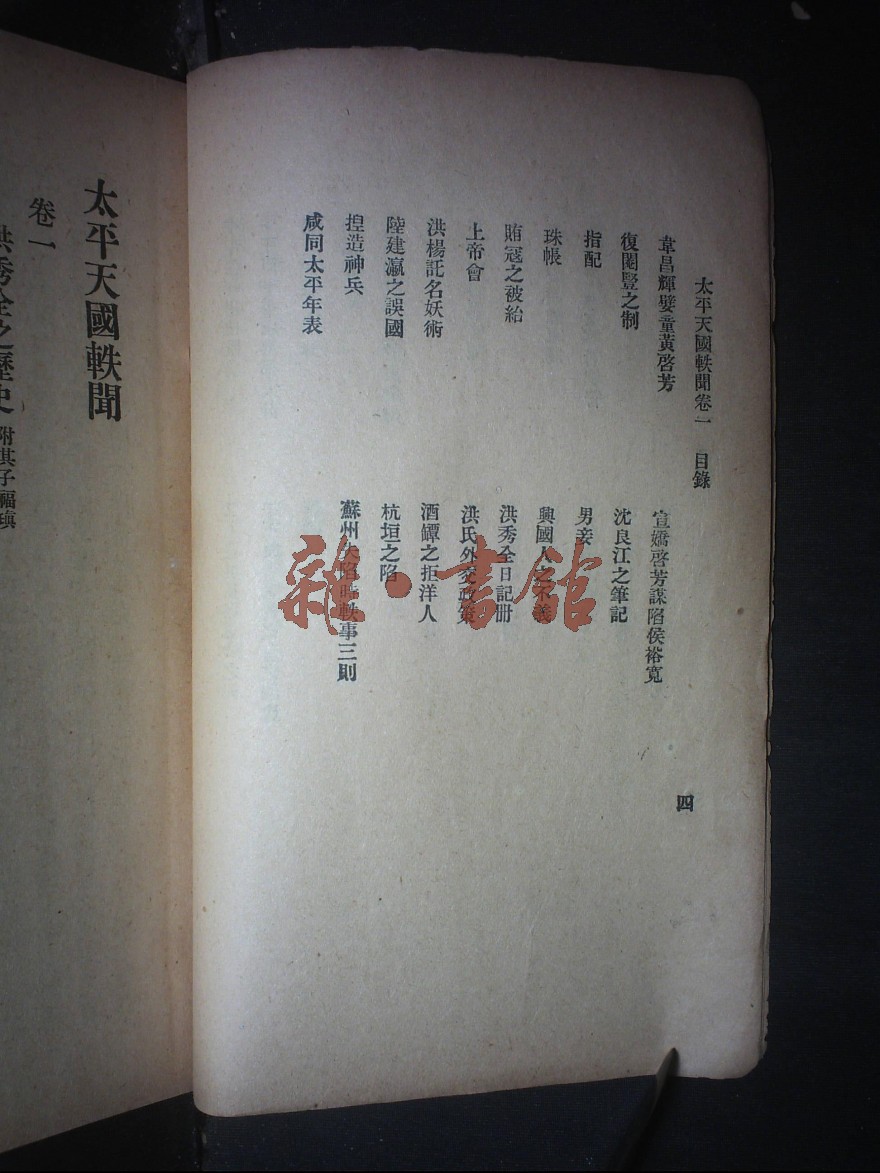 太平天國軼聞卷一　目錄
四
韋昌輝嬖童黃啓芳
宣嬌啓芳謀陷侯裕寬
復閹豎之制
沈良江之筆記
指配
男妾
珠帳
興國人之不義
賄冠之被給
洪秀全日記册
上帝會
洪氏外交政策
洪楊託名妖術
酒罈之拒洋人
陸建瀛之誤國
杭垣之陷
揑造神兵
蘇州失陷時軼事三則
咸同太平年表
雜·書館
太平天國軼聞
卷一
洪秀全之歷史
附其子福瑱